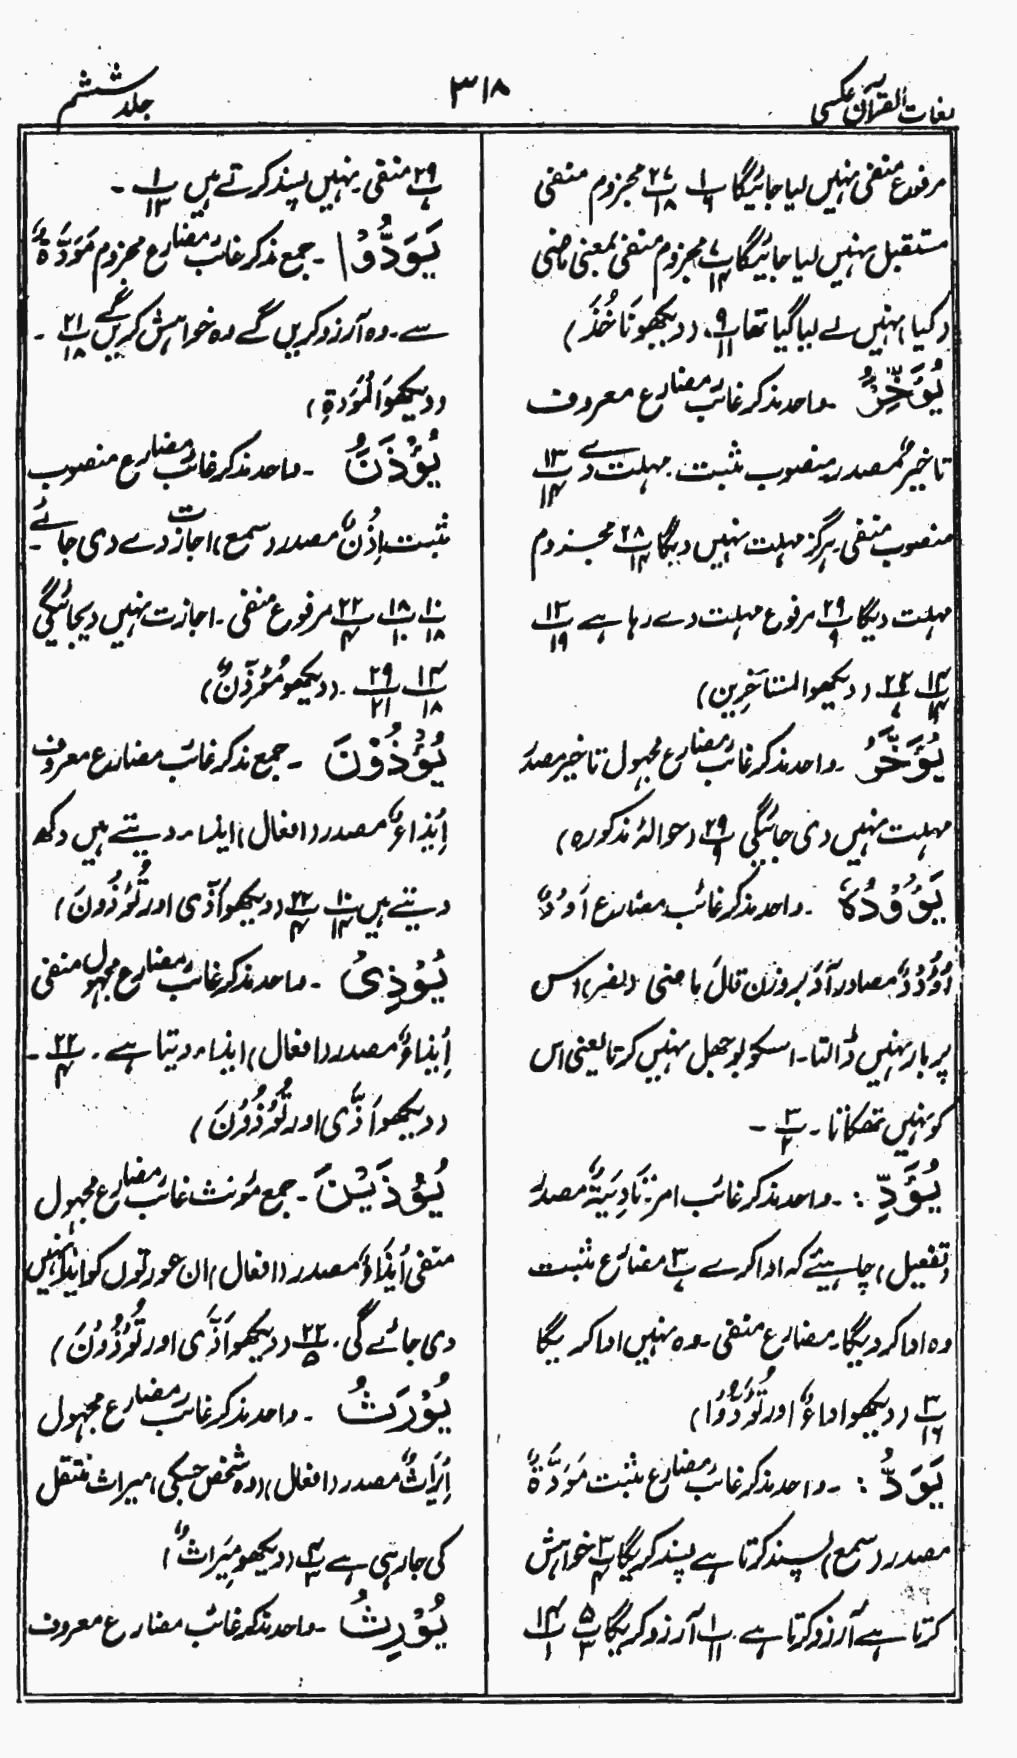 لغات القرآن عکسی
۳۱۸
جلد ششم
مرفوع منفی نہیں لیا جائیگا پ۱/۶ پ۲۷/۱۸ مجزوم منفی
مستقبل نہیں لیا جائیگا پ۷/۱۴ مجزوم منفی بمعنی ماضی
(کیا) نہیں لے لیا گیا تھا پ۹/۱۱ (دیکھو تَاخُذَ)
یُؤَخِّرُ ۔ واحد مذکر غائب مضارع معروف
تاخیرٌ مصدر منصوب مثبت ۔ مہلت دے پ۱۳/۱۴
منصوب منفی ہرگز مہلت نہیں دیگا پ۲۸/۱۴ مجزوم
مہلت دیگا پ۲۹/۹ مرفوع مہلت دے رہا ہے پ۱۳/۱۹
پ۱۴/۱۴ پ۲۲/۱ (دیکھو المستأخِرین)
یُؤَخَّرُ ۔ واحد مذکر غائب مضارع مجہول تاخیر مصدر
مہلت نہیں دی جائیگی پ۲۹/۹ (حوالۂ مذکورہ)
یَؤُوْدُہٗ ۔ واحد مذکر غائب مضارع اَوْدٌ
اُوُوْدٌ مصادر آدَ بروزن قالَ ماضی (نصر) اس
پر بار نہیں ڈالتا ۔ اسکو بوجھل نہیں کرتا یعنی اس
کو نہیں تھکاتا ۔ پ۳/۲ ۔
یُؤَدِّ :۔ واحد مذکر غائب امر ۔ تَادِیَۃٌ مصدر
(تفعیل) چاہیئے کہ ادا کرے پ۳/۷ مضارع مثبت
وہ ادا کر دیگا ۔ مضارع منفی ۔ وہ نہیں ادا کریگا
پ۳/۱۶ (دیکھو اداءٌ اور تُؤَدُّوْا)
یَوَدُّ :۔ واحد مذکر غائب مضارع مثبت مَوَدَّۃٌ
مصدر (سمع) پسند کرتا ہے پسند کریگا پ۳/۴ خواہش
کرتا ہے آرزو کرتا ہے ۔ پ۱/۱۱ آرزو کریگا پ۵/۳ پ۱۴/۱
پ۲۹/۷ منفی ۔ نہیں پسند کرتے ہیں پ۱/۱۳ ۔
یَوَدُّوْا ۔ جمع مذکر غائب مضارع مجزوم مَوَدَّۃٌ
سے ۔ وہ آرزو کریں گے وہ خواہش کریں گے پ۲۱/۱۸ ۔
(دیکھو اَلْمَوَدَّۃِ)
یُؤْذَنَ ۔ واحد مذکر غائب مضارع منصوب
مثبت اِذْنٌ مصدر (سمع) اجازت دے دی جائے ۔
پ۱۰/۱۸ پ۱۸/۱۰ پ۲۲/۴ مرفوع منفی ۔ اجازت نہیں دیجائیگی
پ۱۴/۱۸ پ۲۹/۲۱ ۔ (دیکھو مُؤَذِّنٌ)
یُؤْذُوْنَ ۔ جمع مذکر غائب مضارع معروف
اِیْذَاءٌ مصدر (افعال) ایذاء دیتے ہیں دکھ
دیتے ہیں پ۱۰/۱۴ پ۲۲/۴ (دیکھو اَذًی اور تُؤْذُوْنَ)
یُؤْذِیْ ۔ واحد مذکر غائب مضارع مجہول منفی
اِیْذاءٌ مصدر (افعال) ایذاء دیتا ہے ۔ پ۲۲/۴ ۔
(دیکھو اَذًی اور تُؤْذُوْنَ)
یُؤْذَیْنَ ۔ جمع مؤنث غائب مضارع مجہول
منفی اِیْذَاءٌ مصدر (افعال) ان عورتوں کو ایذا نہیں
دی جائے گی ۔ پ۲۲/۵ (دیکھو اَذًی اور تُؤْذُوْنَ)
یُوْرَثُ ۔ واحد مذکر غائب مضارع مجہول
اِیْرَاثٌ مصدر (افعال) (وہ شخص جسکی) میراث منتقل
کی جا رہی ہے پ۴/۳ (دیکھو مِیْرَاثٌ)
یُوْرِثُ ۔ واحد مذکر غائب مضارع معروف